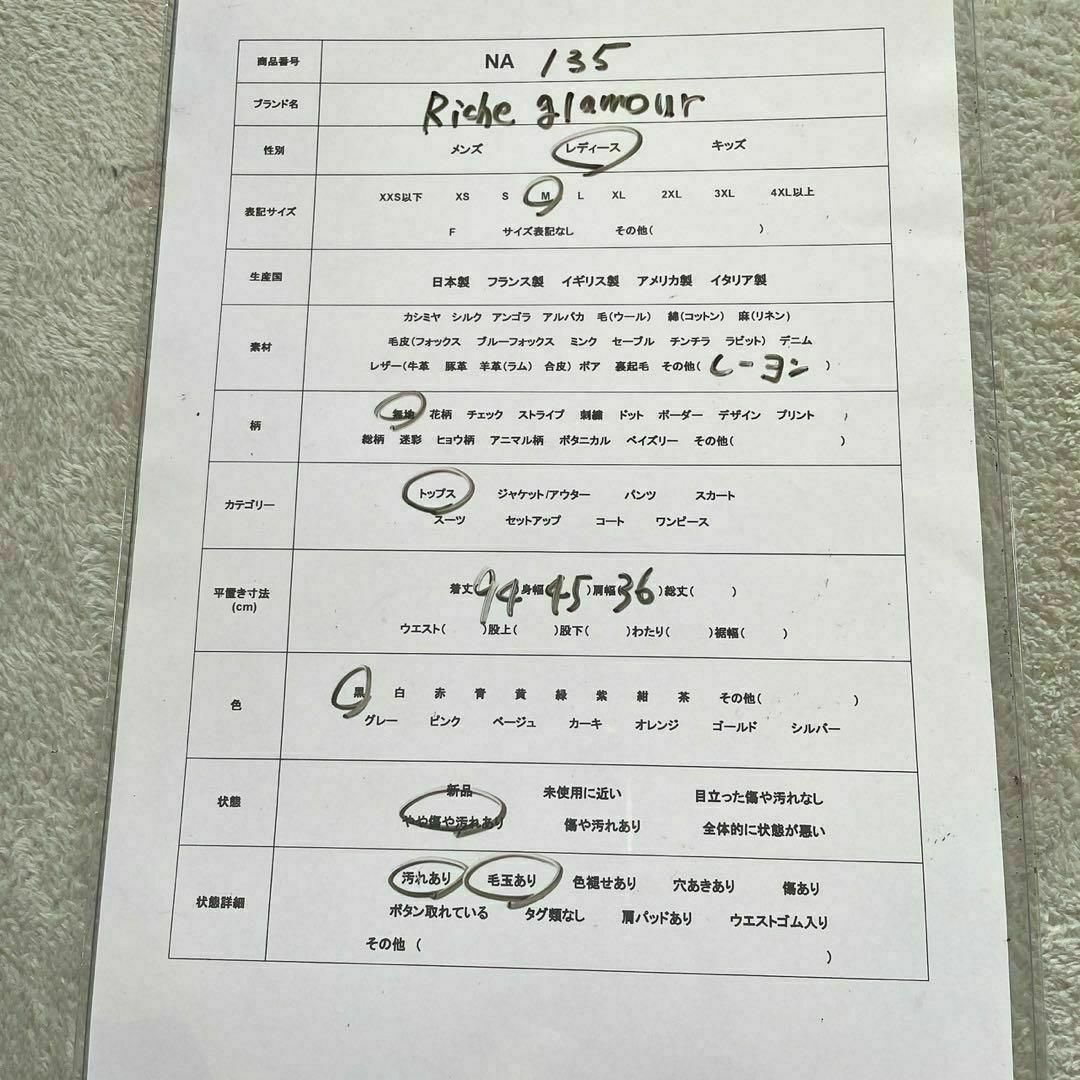 商品番号 NA 135
ブランド名 Riche glamour
性別 メンズ レディース キッズ
表記サイズ XXS以下 XS S M L XL 2XL 3XL 4XL以上
F サイズ表記なし その他( )
生産国 日本製 フランス製 イギリス製 アメリカ製 イタリア製
素材 カシミヤ シルク アンゴラ アルパカ 毛(ウール) 綿(コットン) 麻(リネン)
毛皮(フォックス ブルーフォックス ミンク セーブル チンチラ ラビット) デニム
レザー(牛革 豚革 羊革(ラム) 合皮) ボア 裏起毛 その他( レーヨン )
柄 無地 花柄 チェック ストライプ 刺繍 ドット ボーダー デザイン プリント
総柄 迷彩 ヒョウ柄 アニマル柄 ボタニカル ペイズリー その他( )
カテゴリー トップス ジャケット/アウター パンツ スカート
スーツ セットアップ コート ワンピース
平置き寸法
(cm)
着丈(94)身幅(45)肩幅(36)総丈( )
ウエスト( )股上( )股下( )わたり( )裾幅( )
色 黒 白 赤 青 黄 緑 紫 紺 茶 その他( )
グレー ピンク ベージュ カーキ オレンジ ゴールド シルバー
状態 新品 未使用に近い 目立った傷や汚れなし
やや傷や汚れあり 傷や汚れあり 全体的に状態が悪い
状態詳細 汚れあり 毛玉あり 色褪せあり 穴あきあり 傷あり
ボタン取れている タグ類なし 肩パッドあり ウエストゴム入り
その他 ( )